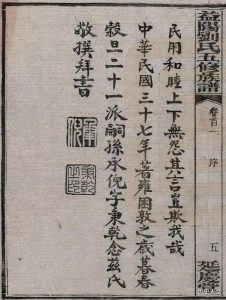 益陽劉氏五修族譜
卷首
序
五
延慶堂
民用和睦上下無怨其言豈欺我哉
中華民國三十七年著雍困敦之歲暮春
穀旦二十一派嗣孫承倪字秉乾念茲氏
敬撰拜書